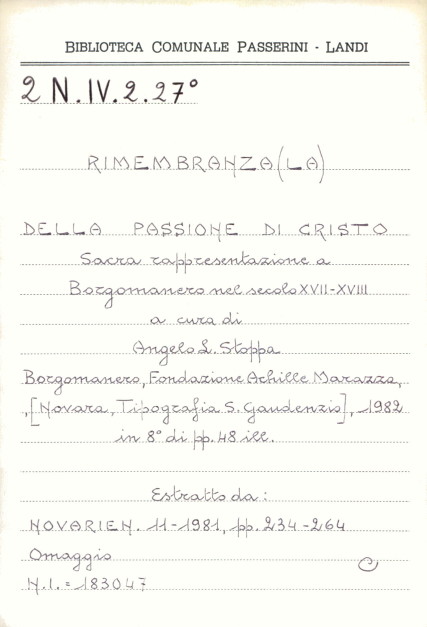 BIBLIOTECA COMUNALE PASSERINI - LANDI
2 N.IV.2.27°
RIMEMBRANZA (LA)
DELLA PASSIONE DI CRISTO
Sacra rappresentazione a
Borgomanero nel secolo XVII-XVIII
a cura di
Angelo L. Stoppa
Borgomanero, Fondazione Achille Marazza,
,[Novara, Tipografia S. Gaudenzio], 1982
in 8° di pp. 48 ill.
Estratto da:
NOVARIEN. 11-1981, pp. 234-264
Omaggio
N.I. = 183047